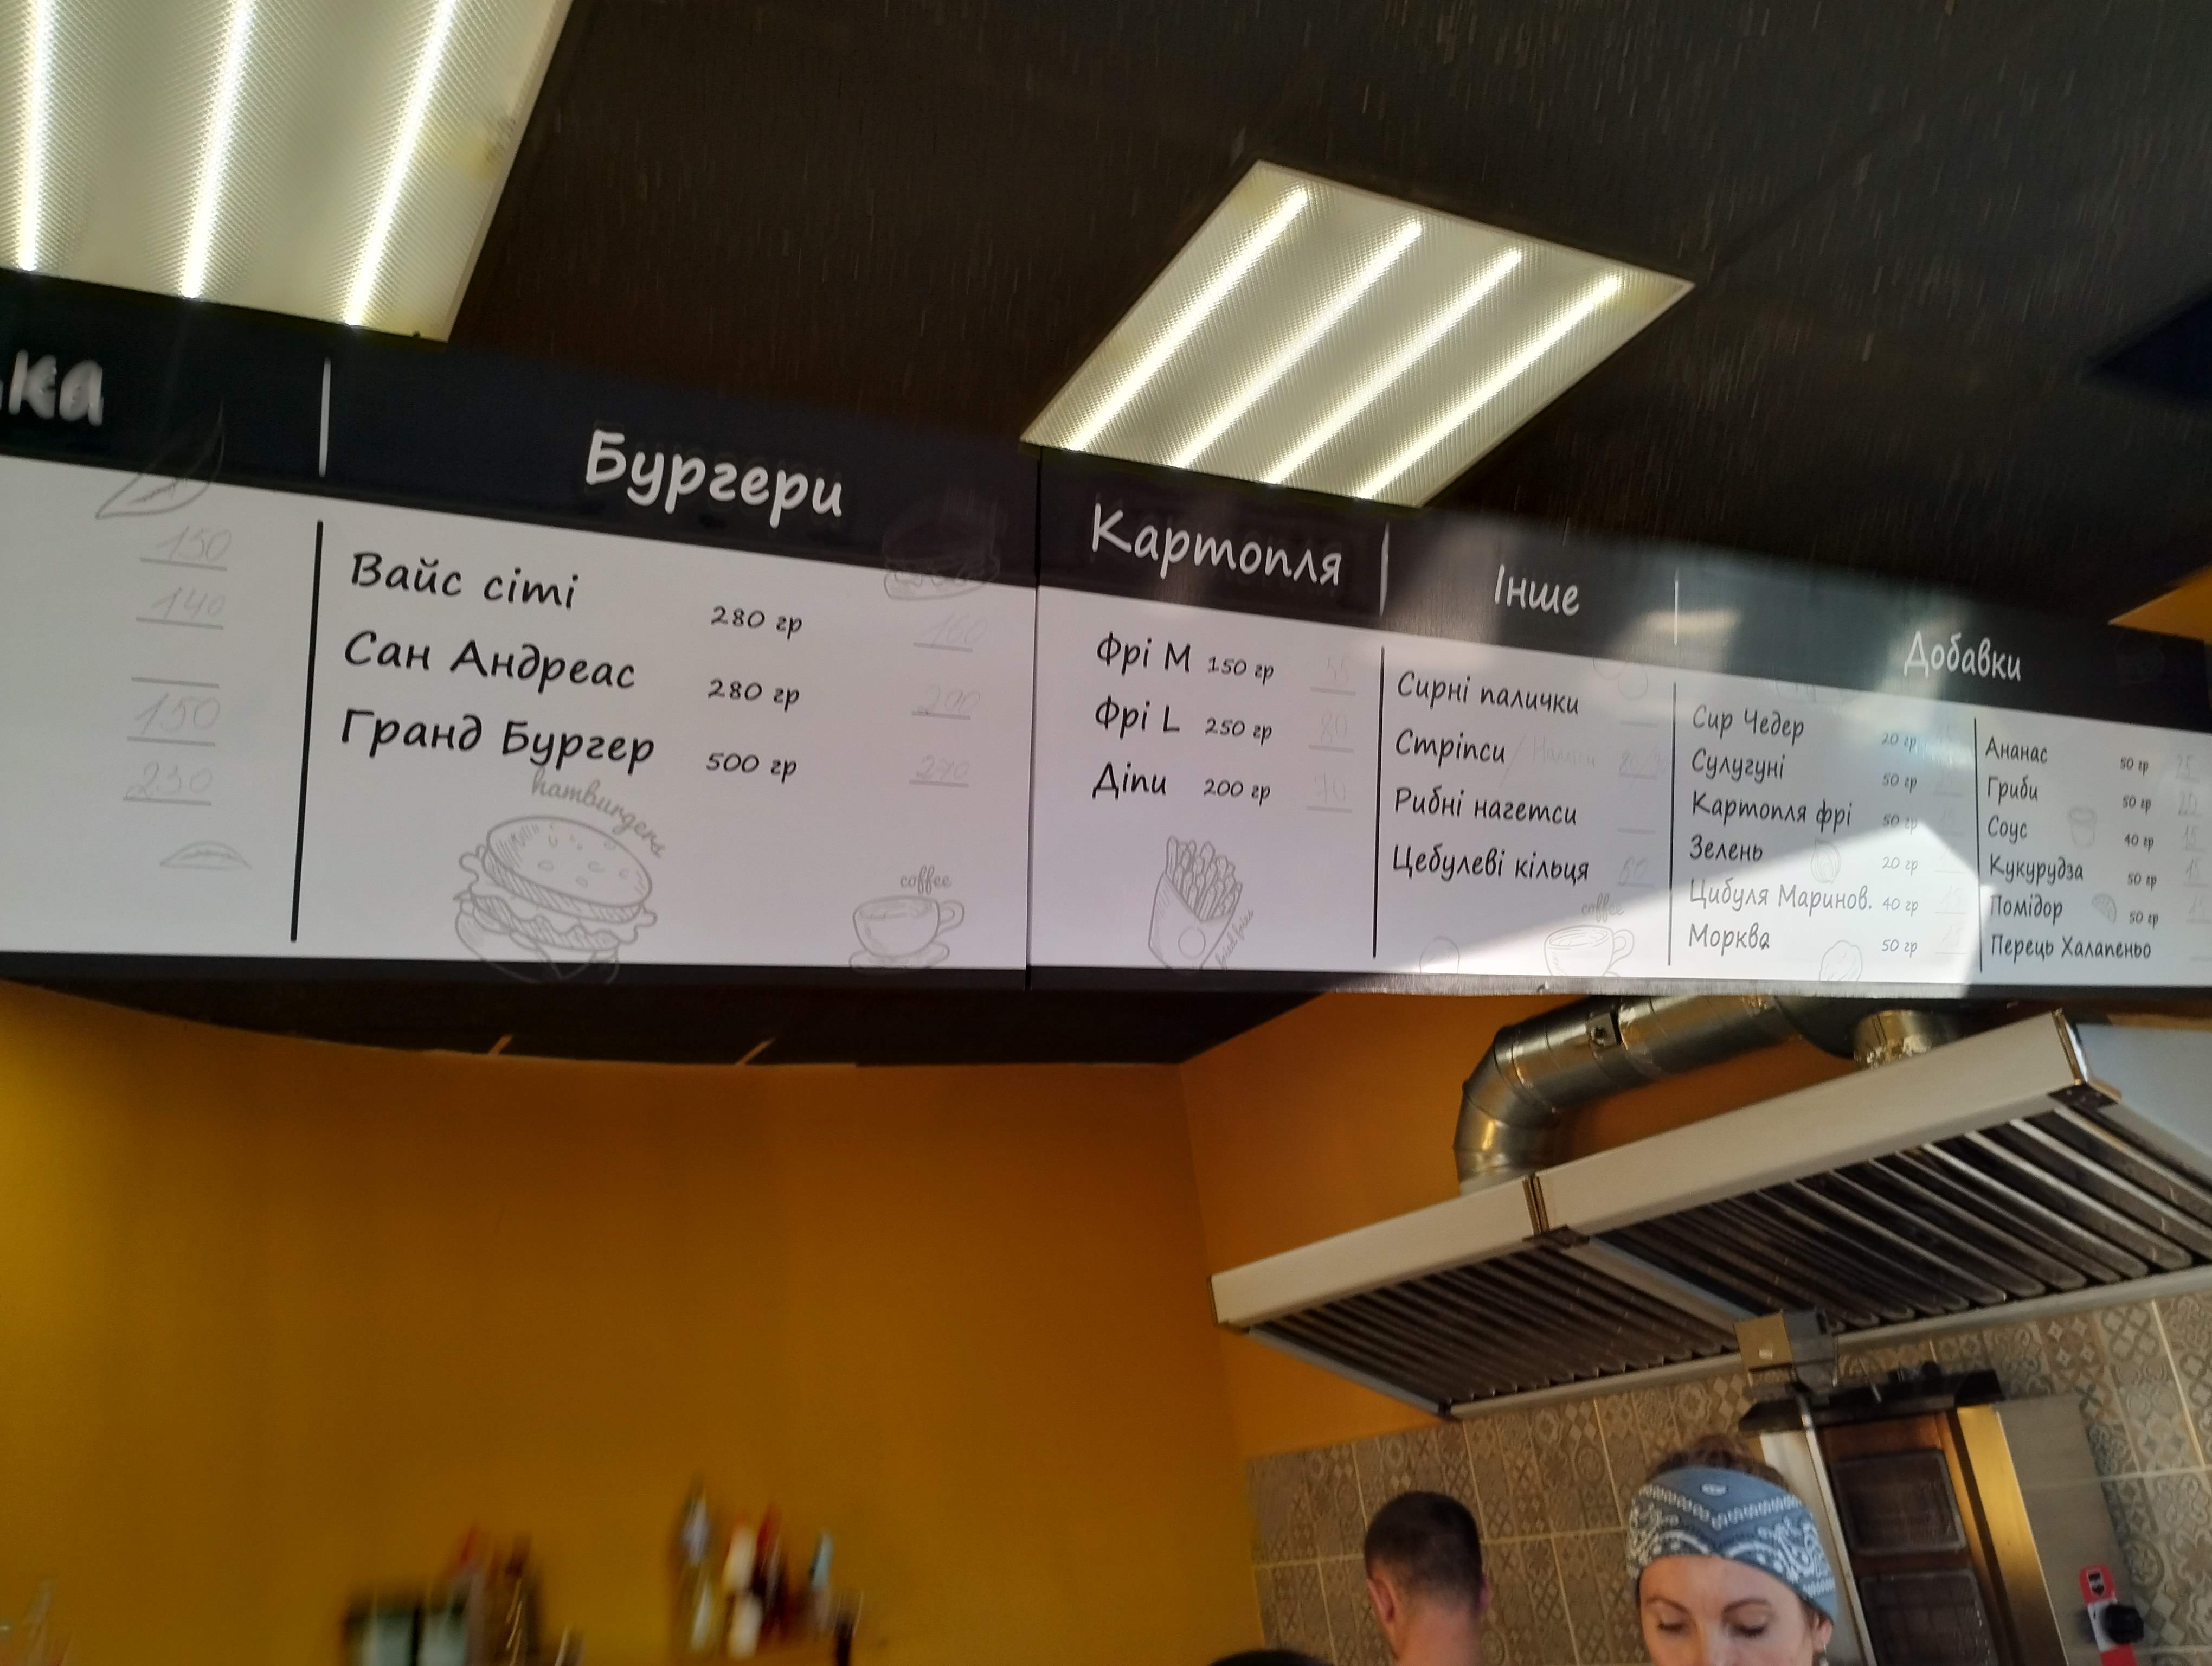 150
140
150
230
Бургери
Вайс сіті 280 гр 160
Сан Андреас 280 гр 200
Гранд Бургер 500 гр 270
hamburgers
coffee
Картопля
Фрі М 150 гр 55
Фрі L 250 гр 80
Діпи 200 гр 70
Інше
Сирні палички
Стріпси
Рибні нагетси
Цебулеві кільця
coffee
Добавки
Сир Чедер 20 гр
Сулугуні 50 гр
Картопля фрі 50 гр
Зелень 20 гр
Цибуля Маринов. 40 гр
Морква 50 гр
Ананас 50 гр
Гриби 50 гр
Соус 40 гр
Кукурудза 50 гр
Помідор 50 гр
Перець Халапеньо